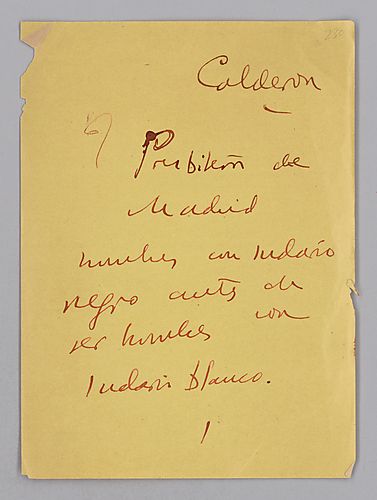 230
Calderon
de
Madrid
hombres con sudario
negro antes de
ser hombres con
sudario blanco.